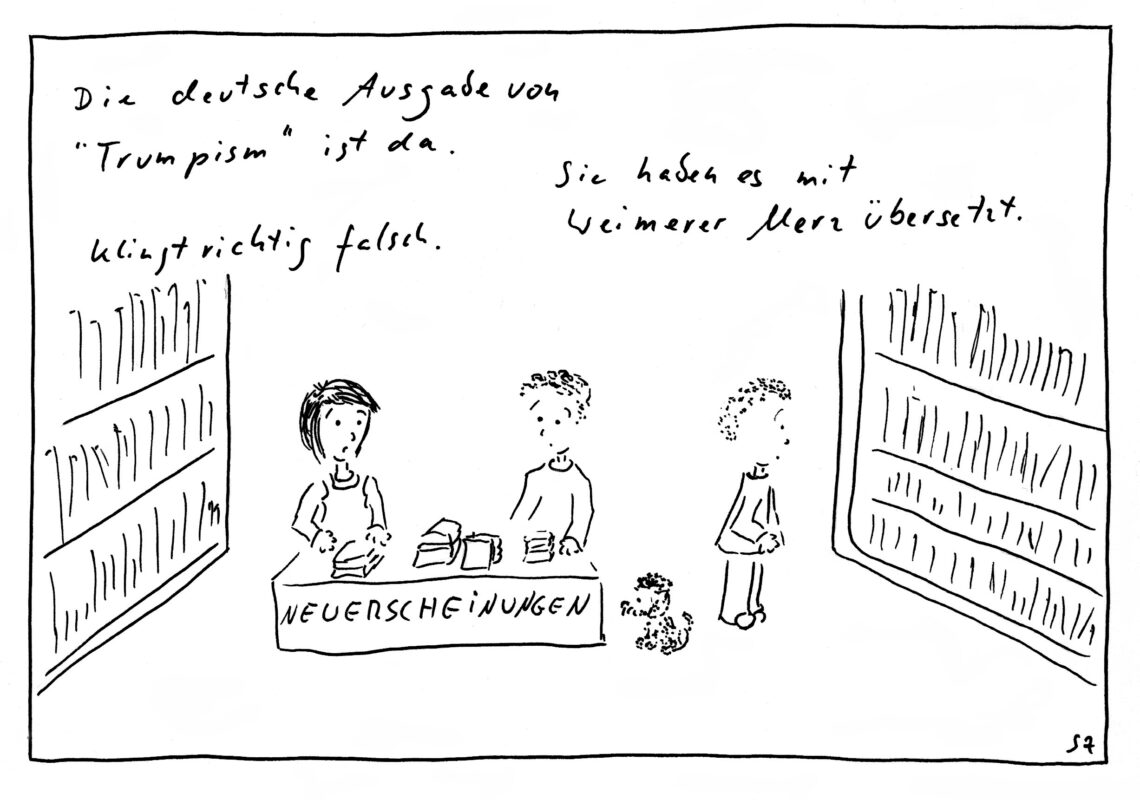 Die deutsche Ausgabe von
"Trumpism" ist da.
Sie haben es mit
Weimerer Merz übersetzt.
Klingt richtig falsch.
NEUERSCHEINUNGEN